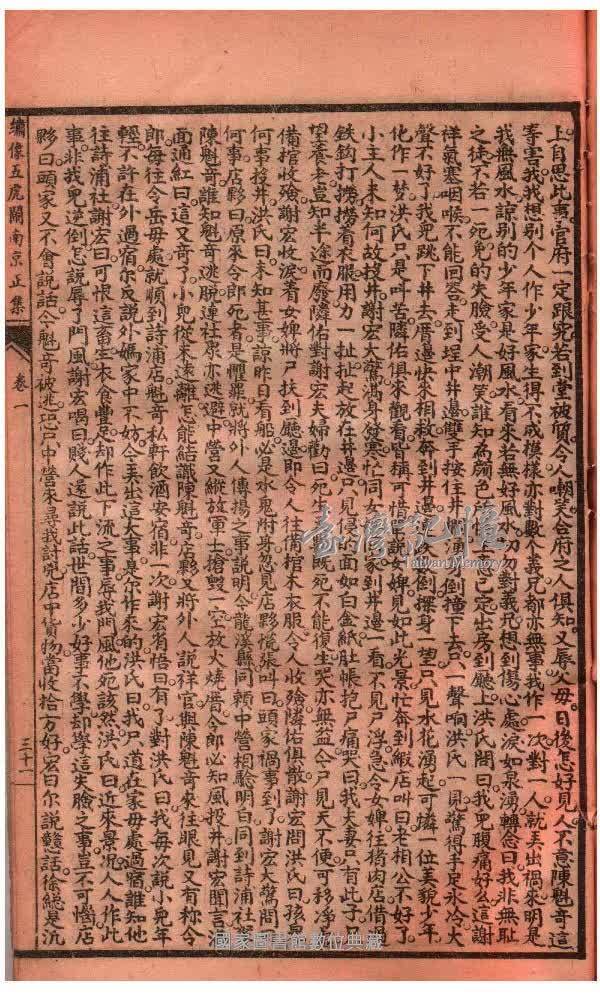 上自思此事官府一定跟究若到堂被質令人嘲笑合府之人俱知又辱父母日後怎好見人不意陳魁奇這
等害我我想别个人作少年家生得不成模樣亦對數个義兄都亦無事我作一次對一人就美出禍來明是
我無風水諒别的少年家是好風水有來若無好風水勿勿對義兄想到傷心處淚如泉湧轉念曰我非無恥
之徒不若一死免的失臉受人潮笑誰知為顏色上註已定出房到廳上洪氏問曰我兜腹痛好么這謝
祥氣塞咽喉不能回答走到埕中井邊雙手按住井湧身倒撞下去只一聲响洪氏一見驚得手足氷冷大
聲不好了我兜跳下井去厝邊快來相救奔到井邊倒探身一望只見水花湧起可憐一位美貌少年
化作一梦洪氏只是叫苦隣佑俱來觀看皆稱可惜說女婢見如此光景忙奔到緞店叫曰老相公不好了
小主人未知何故投井謝宏大驚渾身發寒忙同女家到井邊一看不見尸浮急令女婢往猪肉店借
鉄鈎打撈撈着衣服用力一扯扯起放在井邊只見侵的面如白金紙肚帳抱尸痛哭曰我夫妻只有此子
望養老豈知半途而廢隣佑對謝宏夫婦勸曰死生既死不能復生哭亦無益今尸見天不便可移
備棺收殮謝宏收淚着女婢將尸扶到廳邊即令人往備棺木衣服令人收殮隣佑俱散謝宏問洪氏曰孩兒
何事投井洪氏曰未知甚事諒昨日看船必是水鬼附身忽見店夥慌張叫曰頭家禍事到了謝宏大驚問
何事店夥曰原來令郎死者是懼罪就將外人傳揚之事說明令龍溪縣同賴中營相驗明白同到詩浦社
陳魁奇誰知魁奇逃脫連社眾亦逃避中營又縱放軍士搶毀一空放火燒厝令郎必知風投井謝宏聞言
面通紅曰這又奇了小兜從來遠離怎能結識陳魁奇店夥又將外人說祥官與陳魁奇來往眼見又有稱令
郎每往令岳母處就順到詩浦店魁奇私軒飲酒安宿非一次謝宏省悟曰有了對洪氏曰我每次說小兜年
輕不許在外過宿尔反說外媽家中不妨今美出這大事臭尔作來的洪氏曰我尸道在家母處過宿誰知他
往詩浦社謝宏曰可恨這畜生衣食豊足却作此下流之事辱我門風他死該然洪氏曰近來景况人人作此
事非我兜逆倒怎說辱了門風謝宏喝曰賤人還說此話世間多少好事不學却學這失臉之事豈不可惱店
夥曰頭家又不會說話今魁奇被逃恐尸中營來尋我討兜店中貨物當收拾方好宏曰尔說戇話徐總是沆
繡像五虎鬧南京正集
卷一
三十一
臺灣記憶
Taiwan Memory
國家圖書館數位典藏